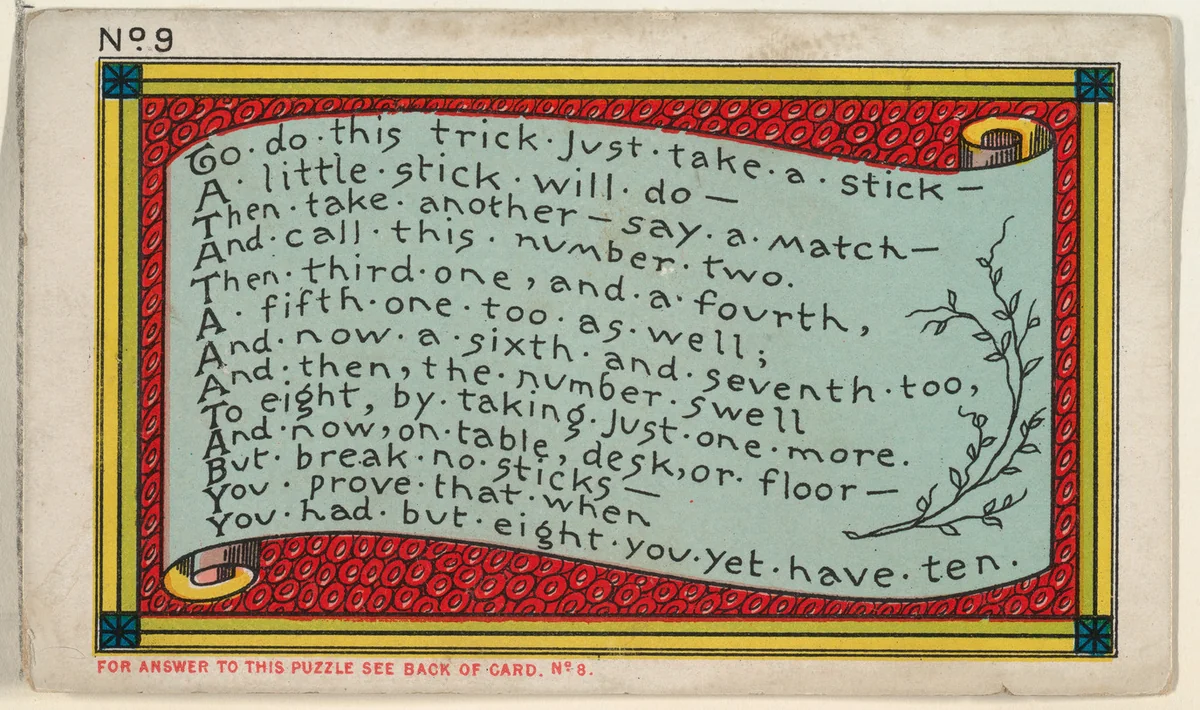 Nº 9
To·do·this trick·Just·take·a·stick—
A·little·stick·will·do—
Then·take·another—say·a·match—
And·call·this·number·two.
Then·third·one, and·a·fourth,
A·fifth·one·too·as·well;
And·now·a·sixth·and·seventh·too,
And·then, the·number·swell
To eight, by·taking·Just·one·more.
And·now, on·table, desk, or·floor—
But·break·no·sticks—
You·prove·that·when
You·had·but·eight·you·yet·have·ten.
FOR ANSWER TO THIS PUZZLE SEE BACK OF CARD. Nº 8.